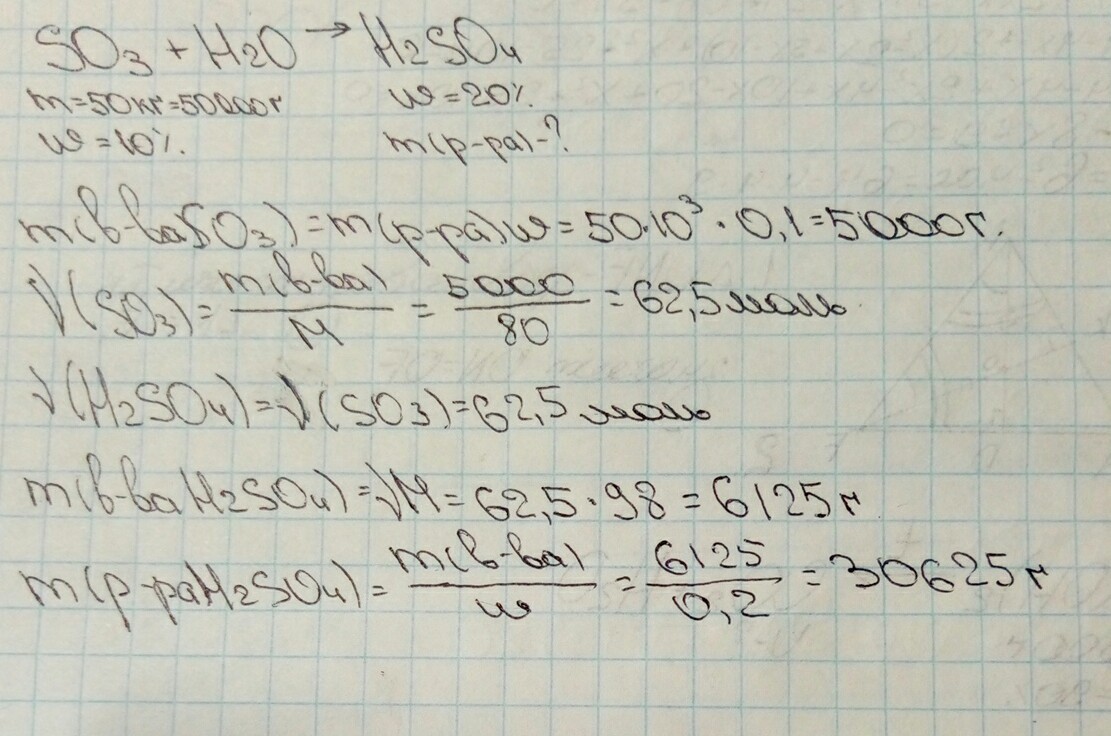 SO3 + H2O → H2SO4
m=50кг=50000г w=20%.
w=10%. m(р-ра)-?
m(в-ваSO3)=m(р-ра)w=50·10³·0,1=5000г.
√(SO3)= m(в-ва)/M = 5000/80 =62,5моль
√(H2SO4)=√(SO3)=62,5моль
m(в-ваH2SO4)=√M=62,5·98=6125г
m(р-раH2SO4)= m(в-ва)/w = 6125/0,2 =30625г